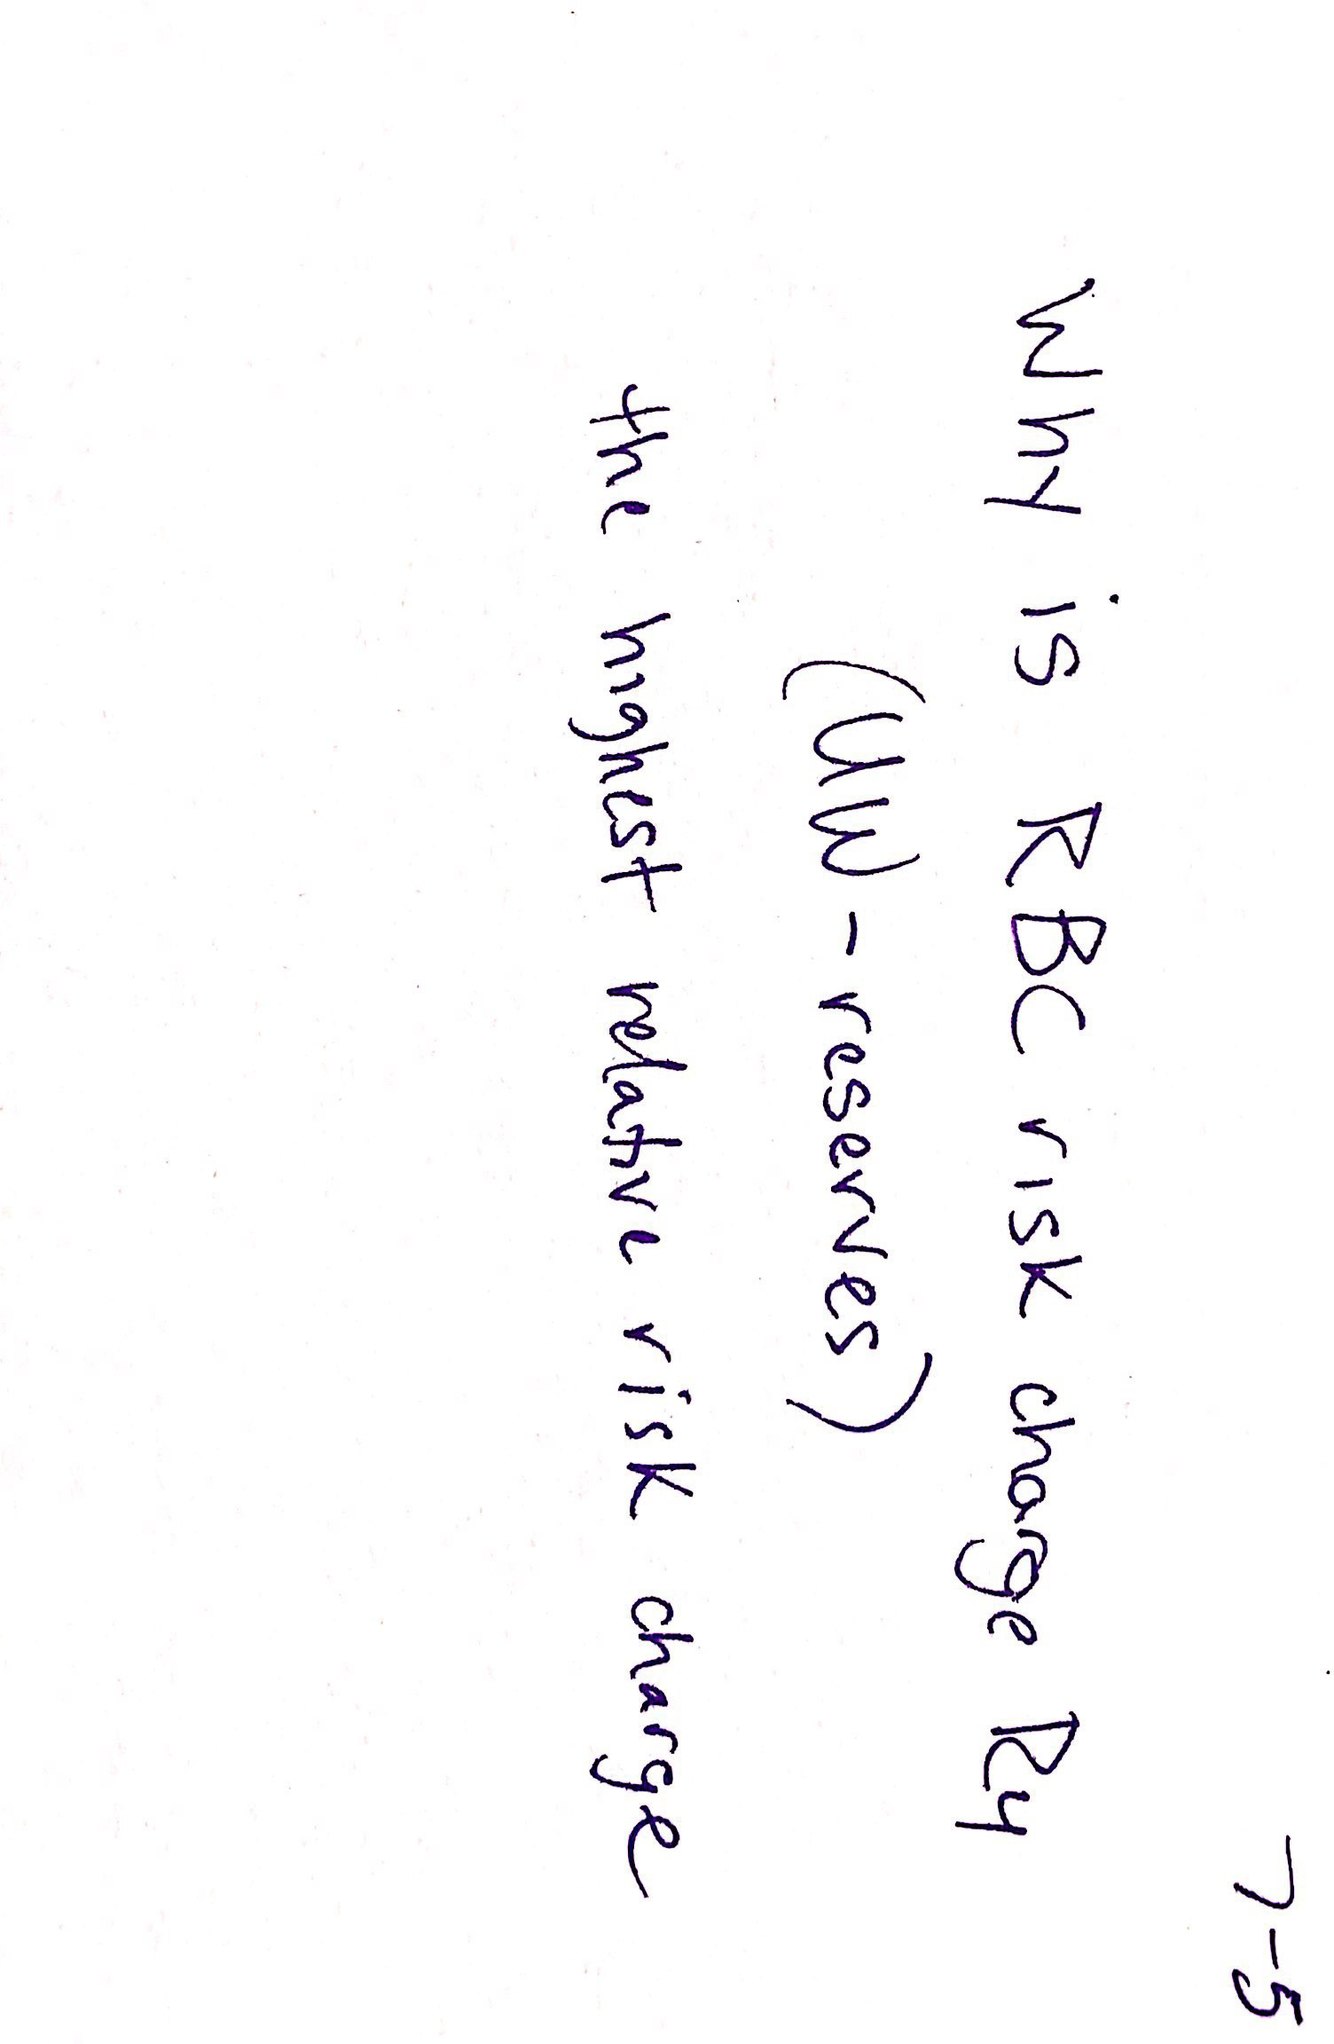 7-5
Why is RBC risk charge R4
(UW-reserves)
the highest relative risk charge